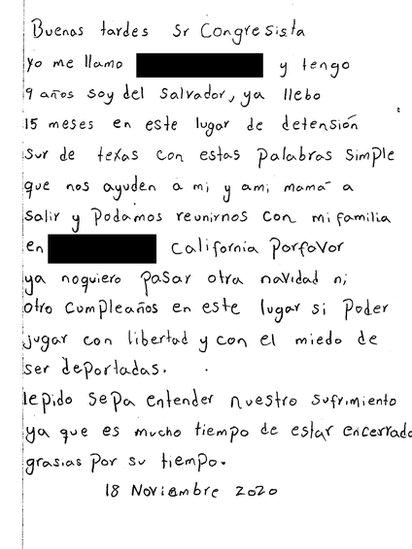 Buenas tardes Sr Congresista
Yo me llamo y tengo
9 años soy del Salvador, ya llebo
15 meses en este lugar de detensión
Sur de texas con estas palabras simple
que nos ayuden a mi y ami mamá a
salir y podamos reunirnos con mi familia
en California porfavor
ya noquiero pasar otra navidad ni
otro cumpleaños en este lugar si poder
jugar con libertad y con el miedo de
ser deportadas.
le pido sepa entender nuestro sufrimiento
ya que es mucho tiempo de estar encerrado
grasias por su tiempo.
18 Noviembre 2020